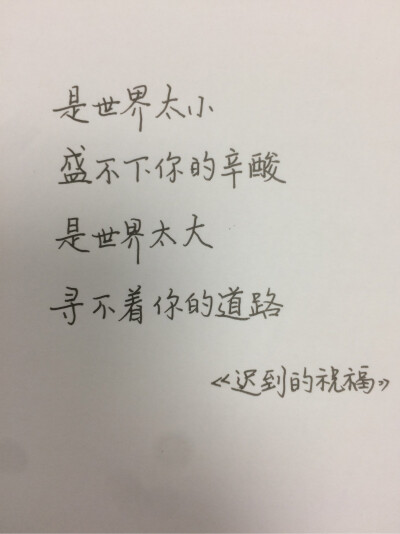 是世界太小
盛不下你的辛酸
是世界太大
寻不着你的道路
《迟到的祝福》